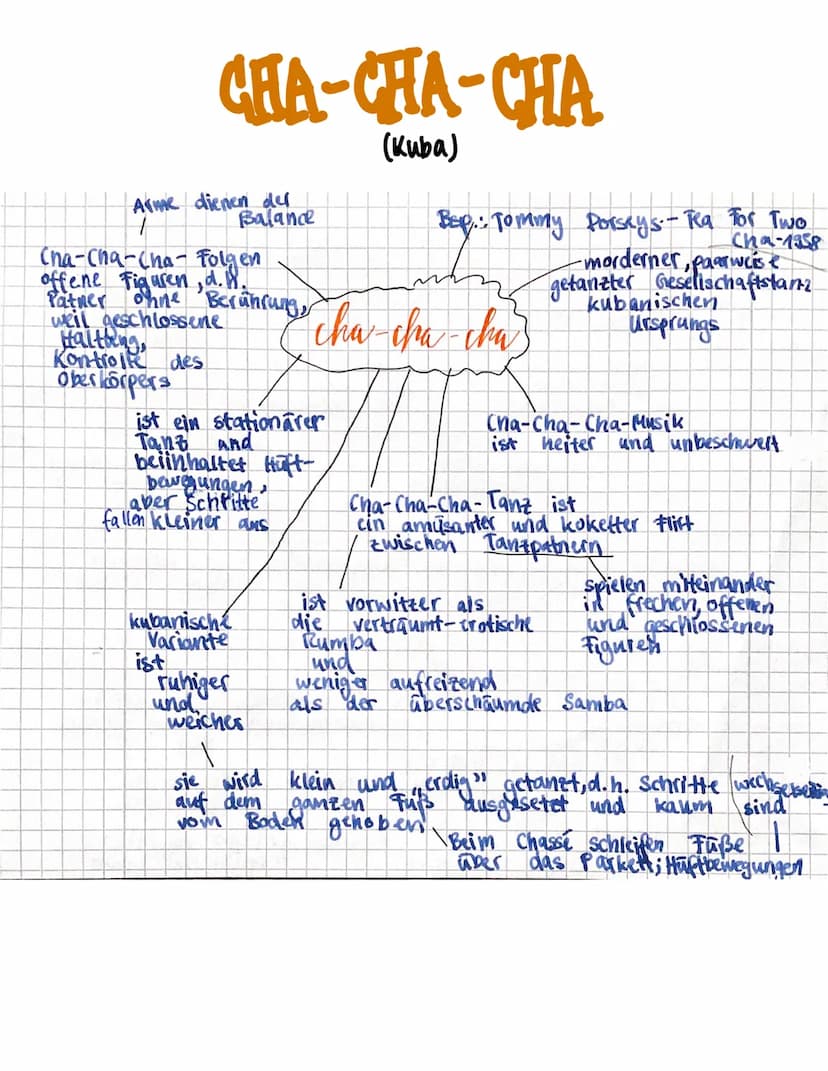 CHA-CHA-CHA
(Kuba)
Arme dienen der
Balance
Cha-Cha-Cha- Folgen
offene Figuren, d.h.
Patner ohne Berührung,
weil geschlossene
Haltung,
Kontrolle des
Oberkörpers
Bsp.: Tommy Dorseys - Tea For Two
Cha-1958
morderner, paarweise
getanzter Gesellschaftstanz
kubanischen
Ursprungs
cha-cha-cha
ist ein stationärer
Tanz und
beiinhaltet Hüft-
bewegungen,
aber Schritte
fallen kleiner aus
Cha-Cha-Cha-Musik
ist heiter und unbeschwert
Cha-Cha-Cha-Tanz ist
ein amüsanter und koketter Flirt
zwischen Tanzpatnern
spielen miteinander
in frechen, offenen
und geschlossenen
Figuren
ist vorwitzer als
die verträumt-erotische
Rumba
und
weniger aufreizend
als der überschäumde Samba
kubanische
Variante
ist
ruhiger
und
weicher
sie wird klein und „erdig" getanzt, d.h. Schritte
auf dem ganzen Fuß ausgesetet und kaum
vom Boden gehoben
wechselseitig
sind
Beim Chassé schleifen Füße
über das Parkett; Hüftbewegungen